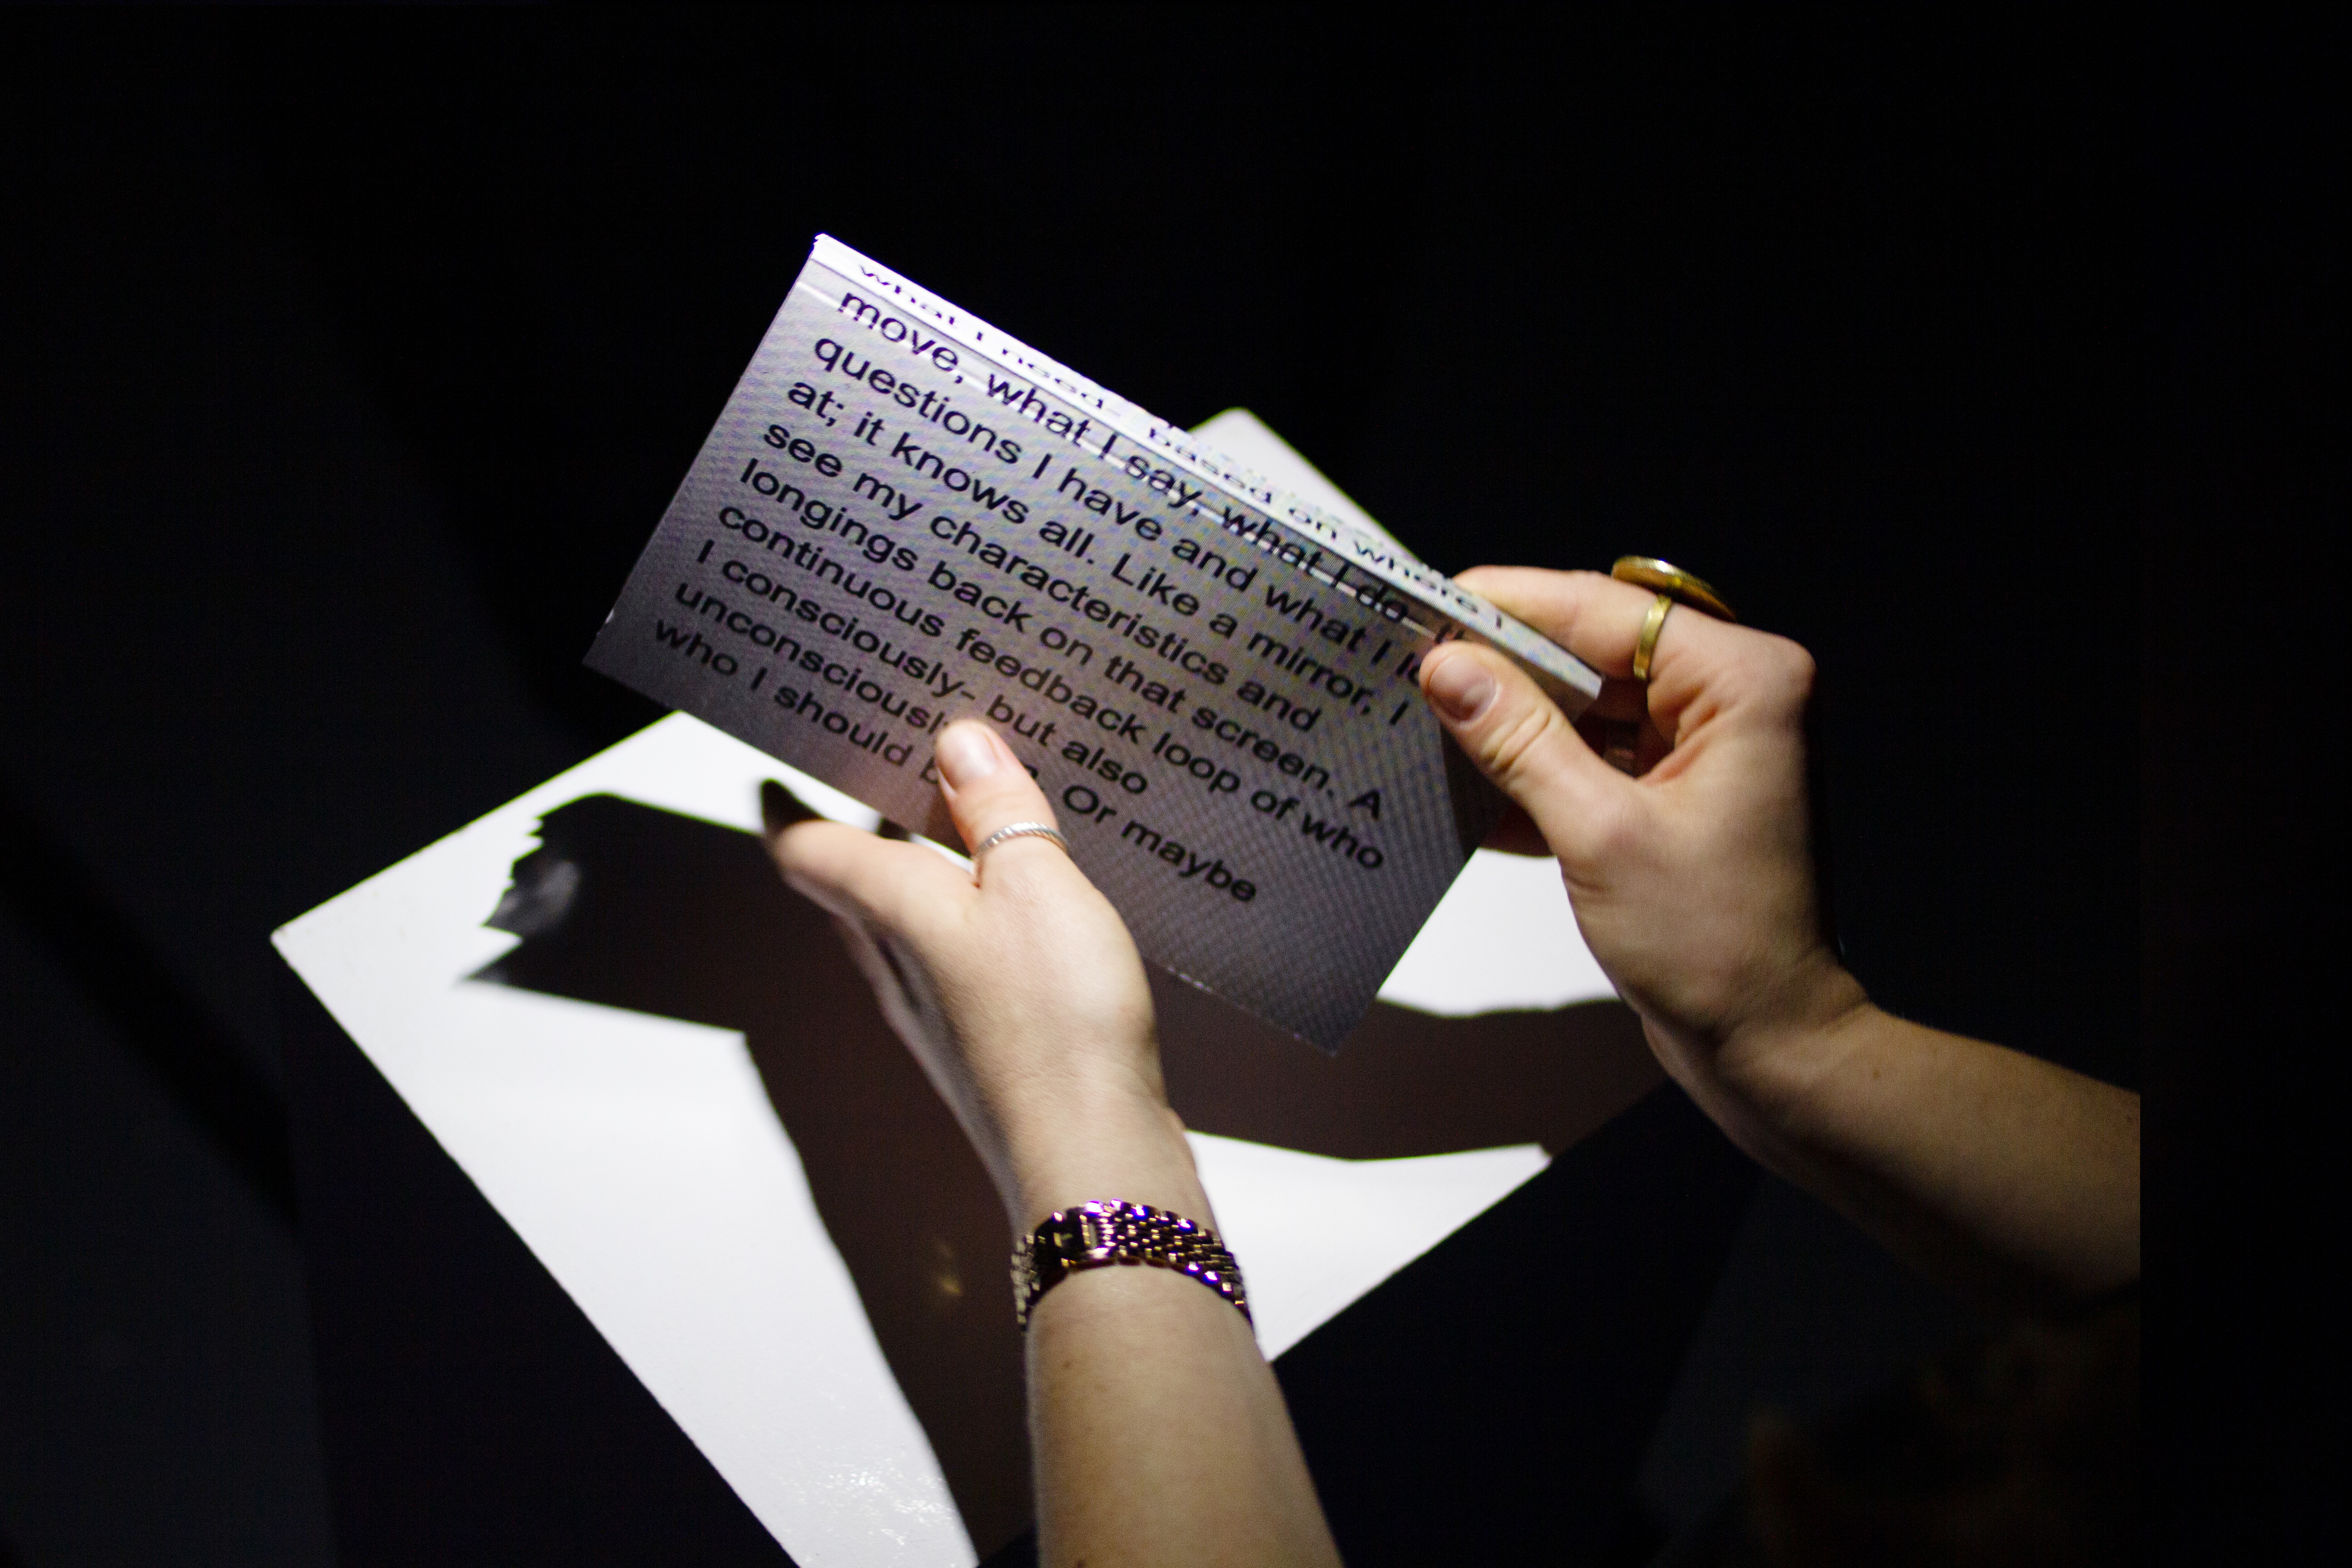 what I need- based on where I
move, what I say, what I do-
questions I have and what I
at; it knows all. Like a mirror, I
see my characteristics and
longings back on that screen. A
continuous feedback loop of who
I consciously- but also
unconsciously Or maybe
who I should